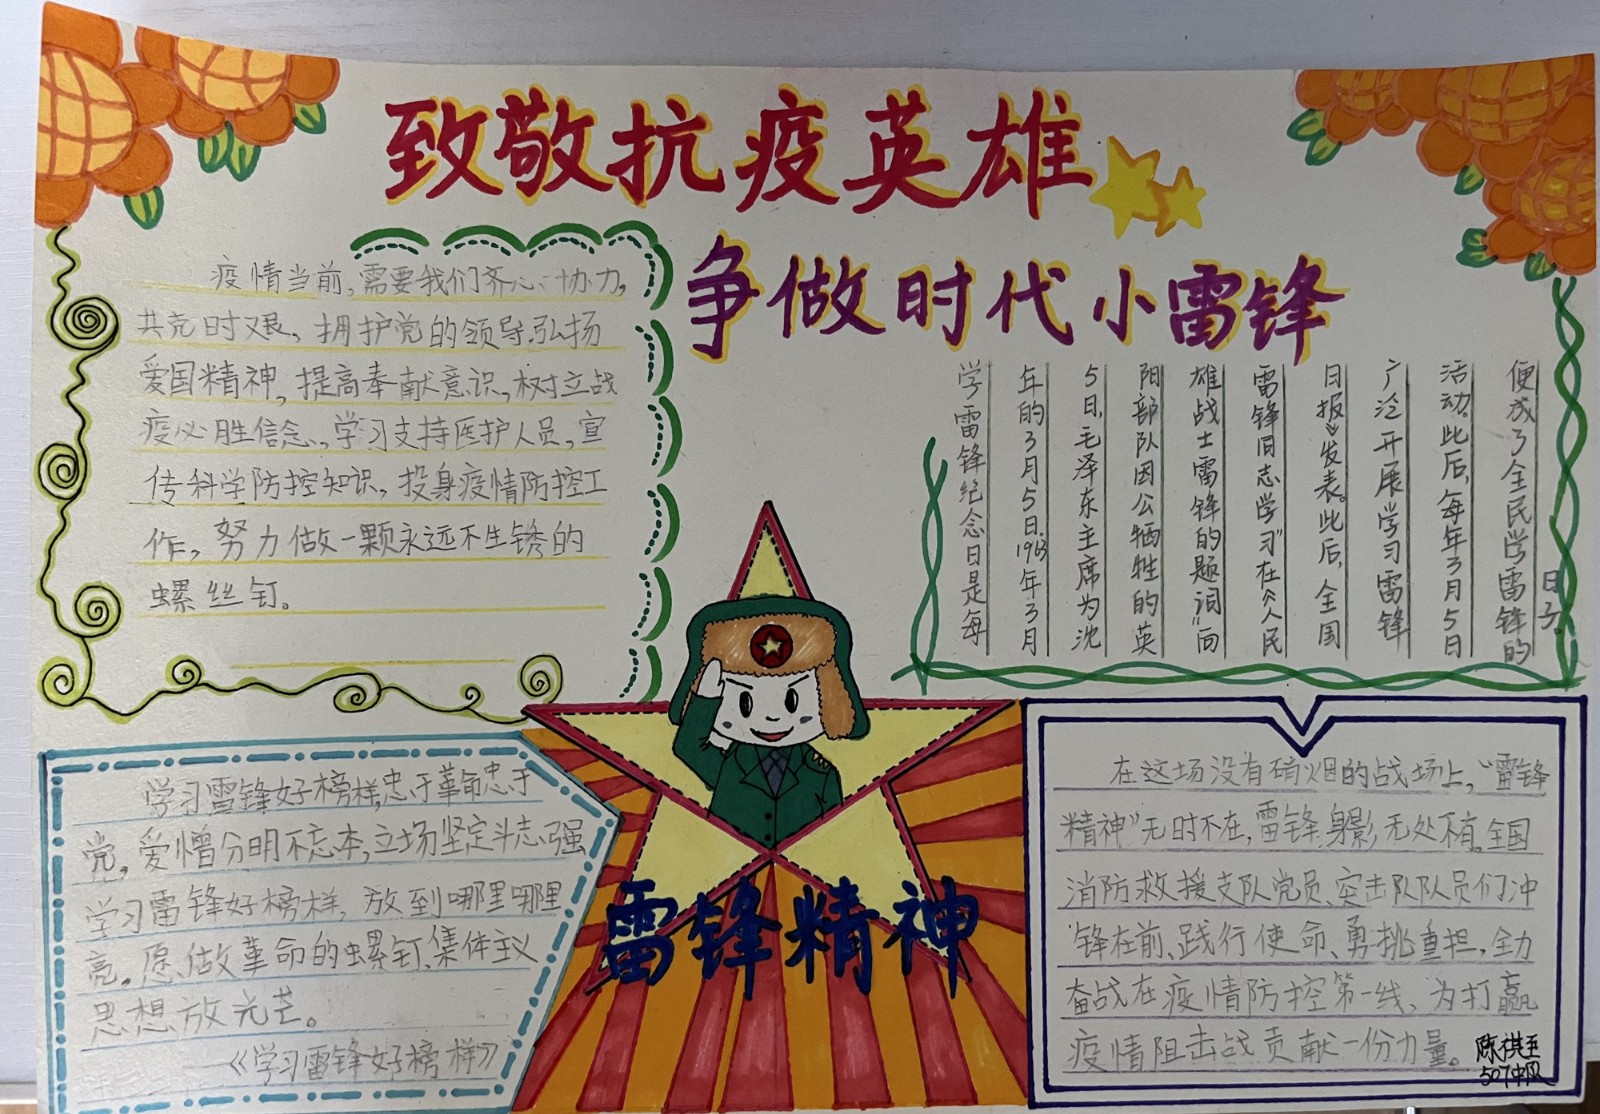 致敬抗疫英雄
争做时代小雷锋
疫情当前,需要我们齐心协力,
共克时艰,拥护党的领导.弘扬
爱国精神,提高奉献意识,树立战
疫必胜信念,学习支持医护人员,宣
传科学防控知识,投身疫情防控工
作,努力做一颗永远不生锈的
螺丝钉。
学雷锋纪念日是每
年的3月5日.1963年3月
5日,毛泽东主席为沈
阳部队因公牺牲的英
雄战士雷锋的题词"向
雷锋同志学习"在《人民
日报》发表。此后,全国
广泛开展学习雷锋
活动。此后,每年3月5日
便成了全民学雷锋的
日子。
学习雷锋好榜样,忠于革命忠于
党,爱憎分明不忘本,立场坚定斗志强
学习雷锋好榜样,放到哪里哪里
亮。愿做革命的螺钉、集体主义
思想放光芒。
——《学习雷锋好榜样》
雷锋精神
在这场没有硝烟的战场上,"雷锋
精神"无时不在,雷锋身影无处不有.全国
消防救援支队党员、突击队队员们冲
锋在前、践行使命、勇挑重担,全力
奋战在疫情防控第一线、为打赢
疫情阻击战贡献一份力量。
陈祺至
507中队